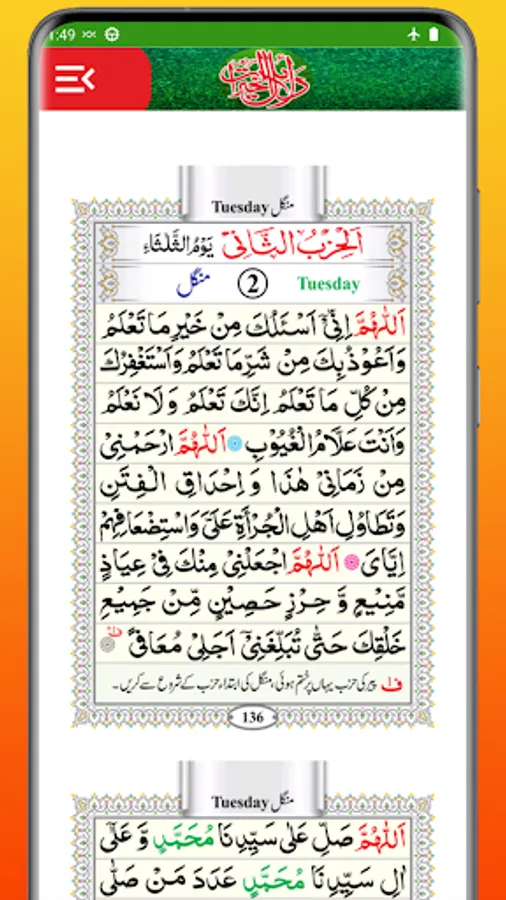 1:49
دلائل الخیرات
Tuesday منگل
اَلْحِزْبُ الثَّانِیْ یَوْمُ الثَّلٰثَاءِ
منگل 2 Tuesday
اَللّٰهُمَّ اِنِّیْۤ اَسْئَلُكَ مِنْ خَیْرِ مَا تَعْلَمُ
وَاَعُوْذُ بِكَ مِنْ شَرِّ مَا تَعْلَمُ وَاَسْتَغْفِرُكَ
مِنْ كُلِّ مَا تَعْلَمُ اِنَّكَ تَعْلَمُ وَلَا نَعْلَمُ
وَاَنْتَ عَلَّامُ الْغُیُوْبِ اَللّٰهُمَّ ارْحَمْنِیْ
مِنْ زَمَانِیْ هٰذَا وَ اِحْدَاقِ الْفِتَنِ
وَتَطَاوُلِ اَهْلِ الْجُرْأَةِ عَلَیَّ وَاسْتِضْعَافِهِمْ
اِیَّایَ اَللّٰهُمَّ اجْعَلْنِیْ مِنْكَ فِیْ عِیَاذٍ
مَّنِیْعٍ وَّ حِرْزٍ حَصِیْنٍ مِّنْ جَمِیْعِ
خَلْقِكَ حَتّٰی تُبَلِّغَنِیْۤ اَجَلِیْ مُعَافًی
ف پیر کی حزب یہاں پر ختم ہوئی، منگل کی ابتداء حزب کے شروع سے کریں۔
136
Tuesday منگل
اَللّٰهُمَّ صَلِّ عَلٰی سَیِّدِنَا مُحَمَّدٍ وَّ عَلٰۤی
اٰلِ سَیِّدِنَا مُحَمَّدٍ عَدَدَ مَنْ صَلّٰی